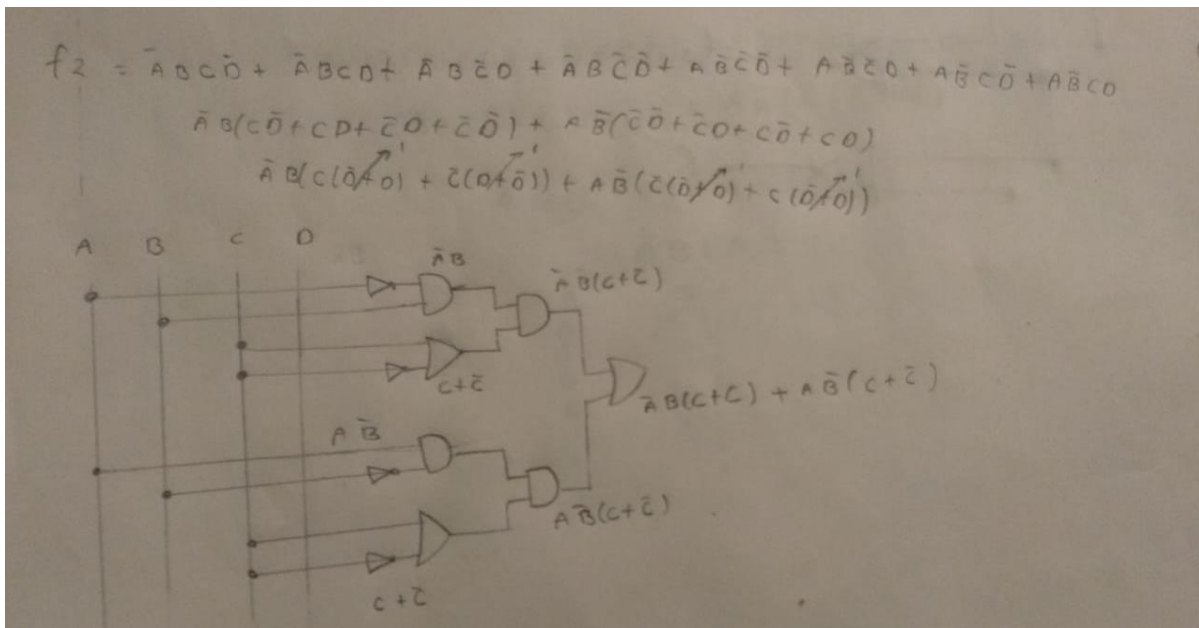 f2 = ĀBCD̄ + ĀBCD + ĀBC̄D + ĀBC̄D̄ + AB̄C̄D̄ + AB̄C̄D + AB̄CD̄ + AB̄CD
ĀB(CD̄ + CD + C̄D + C̄D̄) + AB̄(C̄D̄ + C̄D + CD̄ + CD)
ĀB(C(D̄+D)¹ + C̄(D+D̄)¹) + AB̄(C̄(D̄+D)¹ + C(D̄+D)¹)
A B C D
ĀB
ĀB(C+C̄)
C+C̄
ĀB(C+C) + AB̄(C+C̄)
AB̄
AB̄(C+C̄)
C+C̄